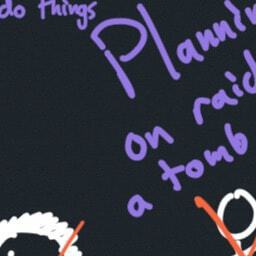 do things
Plannin
on raid
a tomb